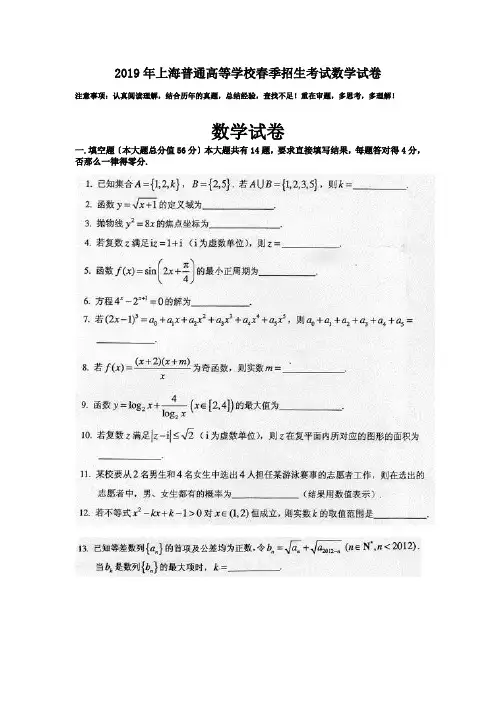 2019年上海普通高等学校春季招生考试数学试卷
注意事项：认真阅读理解，结合历年的真题，总结经验，查找不足！重在审题，多思考，多理解！
数学试卷
一.填空题〔本大题总分值56分〕本大题共有14题，要求直接填写结果，每题答对得4分，
否那么一律得零分.
1. 已知集合A={1,2,k}，B={2,5}. 若A∪B={1,2,3,5}，则k=________.
2. 函数y=√(x+1)的定义域为________.
3. 抛物线y²=8x的焦点坐标为________.
4. 若复数z满足iz=1+i（i为虚数单位），则z=________.
5. 函数f(x)=sin(2x+π/4)的最小正周期为________.
6. 方程4ˣ-2ˣ⁺¹=0的解为________.
7. 若(2x-1)⁵=a₀+a₁x+a₂x²+a₃x³+a₄x⁴+a₅x⁵，则a₀+a₁+a₂+a₃+a₄+a₅=
________.
8. 若f(x)=(x+2)(x+m)/x为奇函数，则实数m=________.
9. 函数y=log₂x+4/log₂x (x∈[2,4])的最大值为________.
10. 若复数z满足|z-i|≤√2（i为虚数单位），则z在复平面内所对应的图形的面积为
________.
11. 某校要从2名男生和4名女生中选出4人担任某游泳赛事的志愿者工作，则在选出的
志愿者中，男、女生都有的概率为________（结果用数值表示）.
12. 若不等式x²-kx+k-1>0对x∈(1,2)恒成立，则实数k的取值范围是________.
13. 已知等差数列{aₙ}的首项及公差均为正数，令bₙ=√aₙ+√a₂₀₁₂₋ₙ (n∈N*,n<2012).
当bₖ是数列{bₙ}的最大项时，k=________.